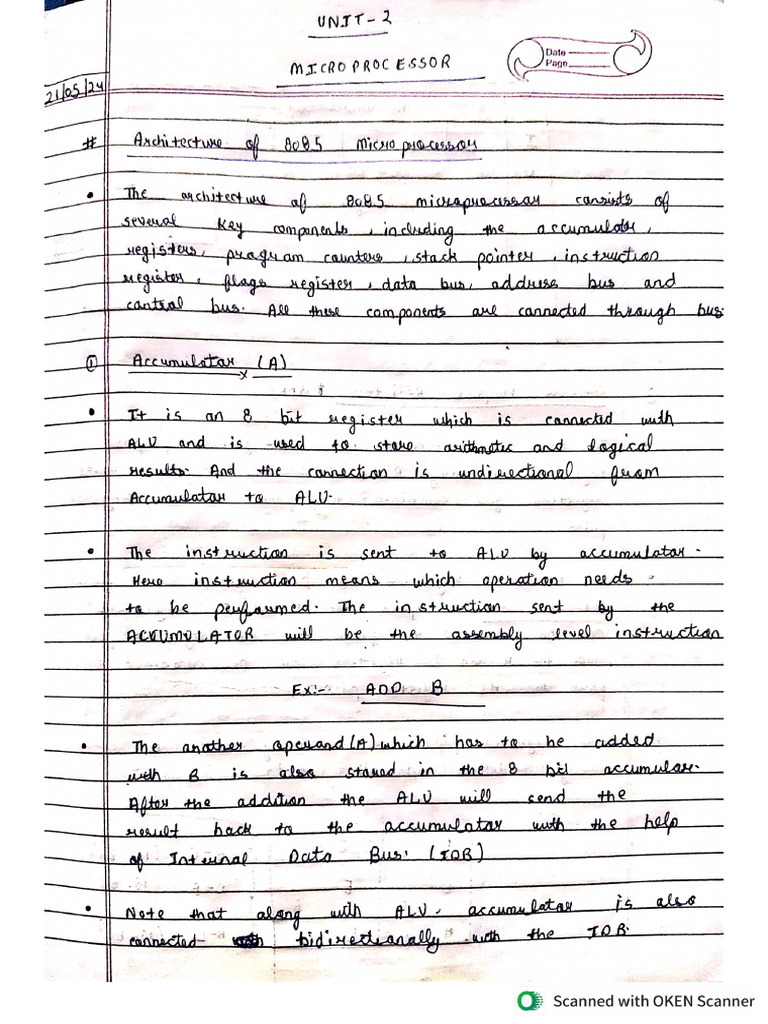 UNIT-2
MICROPROCESSOR
Date
Page
21/05/24
# Architecture of 8085 Microprocessor
• The architecture of 8085 microprocessor consists of
several key components, including the accumulator,
registers, program counters, stack pointer, instruction
register, flags register, data bus, address bus and
control bus. All these components are connected through bus.
① Accumulator (A)
• It is an 8 bit register which is connected with
ALU and is used to store arithmetic and logical
results. And the connection is undirectional from
Accumulator to ALU.
• The instruction is sent to ALU by accumulator.
Here instruction means which operation needs
to be performed. The instruction sent by the
ACCUMULATOR will be the assembly level instruction
Ex:- ADD B
• The another operand (A) which has to be added
with B is also stored in the 8 bit accumular.
After the addition the ALU will send the
result back to the accumulator with the help
of Internal Data Bus. (IDB)
• Note that along with ALU, accumulator is also
connected bidirectionally with the IDB.
Scanned with OKEN Scanner